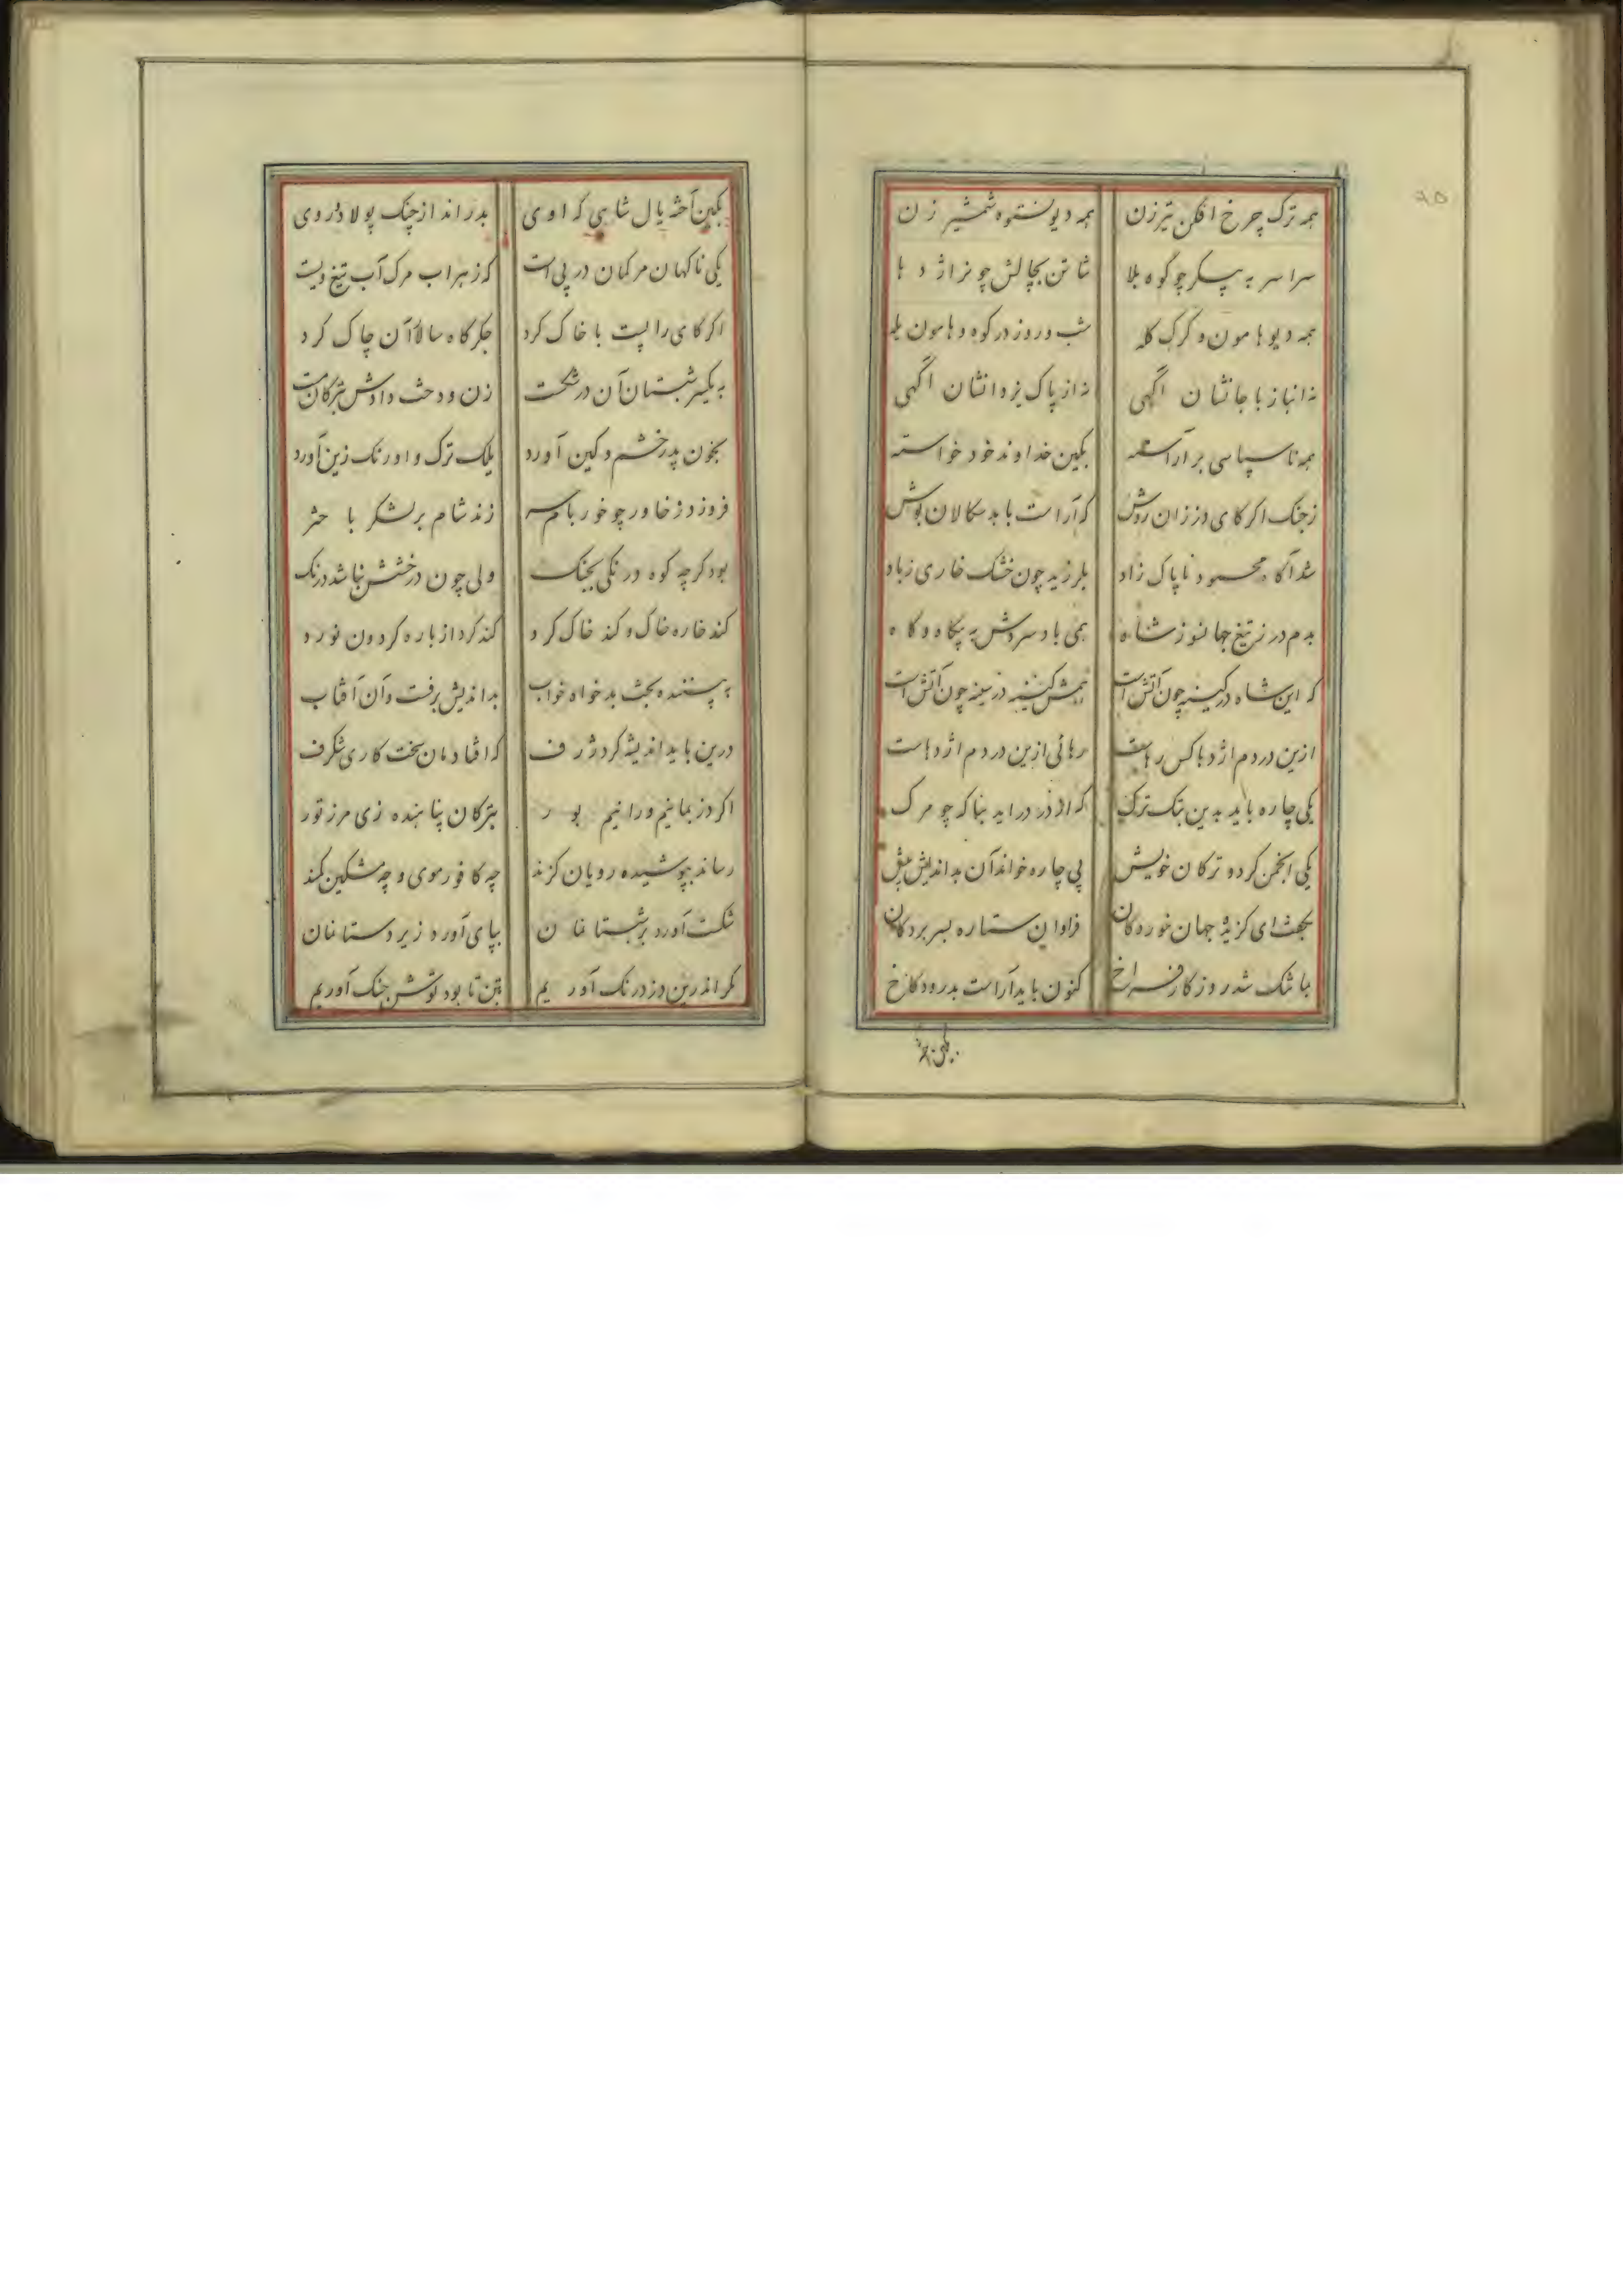 ۹۵
همه ترک چرخ افکن تیرزن همه دیو نستوه شمشیر زن
سراسر به پیکر چو کوه بلا شتابان بچالش چو نر اژدها
همه دیو هامون و کرک کله شب و روز در کوه و هامون یله
نه ز انباز با جانشان اکهی نه از پاک یزدانشان اکهی
همه ناسپاسی بر آراسته بکین خداوند خود خواسته
ز جنک ارکای دزدان روش که آراست با بدسکالان بوش
شد آکاه محمود ناپاک زاد بلرزید چون خشک خاری ز باد
بدم در ز تیغ جهانسوز شاه همی باد سردش به بیکاه و کاه
که این شاه در کینه چون آتش است همش کینه در سینه چون آتش است
ازین در دم اژدها کس رهاست رهائی ازین در دم اژدهاست
یکی چاره باید بدین تنک ترک که از در دراید بناکه چو مرک
یکی انجمن کرد و ترکان خویش پی چاره خواند آن بداندیش پیش
بکفت ای کزیده جهان خوردکان فراوان ستاره بسر بردکان
بما تنک شد روزکار فراخ کنون باید آراست بدرود کاخ
بکین آخته یال شاهی که اوی بدراند از چنک پولاد روی
یکی ناکهان مرکمان در پی است که زهراب مرک آب تیغ ویست
ارکای را پست با خاک کرد جکرکاه سالار آن چاک کرد
به یکسر شبستان آن درشکست زن و دخت و اوش بترکان
بخون پدر خشم و کین آورد یلک ترک و اورنک زین آورد
فروزد ز خاور چو خور بام سر زند شام بر لشکر باختر
بود کرچه کوه درنکی بجنک ولی چون درخشش نباشد درنک
کند خاره خاک و کند خاک کرد کند کرد از باره کردون نورد
پسنده بخت بدخواه خواب بداندیش برفت و آن آفتاب
درین باید اندیشه کرد ژرف که افتادمان سخت کاری شکرف
اکر دز بمانیم و رانیم بور بترکان پناهنده زی مرز تور
رساند بپوشیده رویان کزند چه کافور موی و چه مشکین کمند
شکست آورد بر شبستانمان بپای آورد زیر دستانمان
کر اندرین دز درنک آوریم بتن تا بود توش جنک آوریم